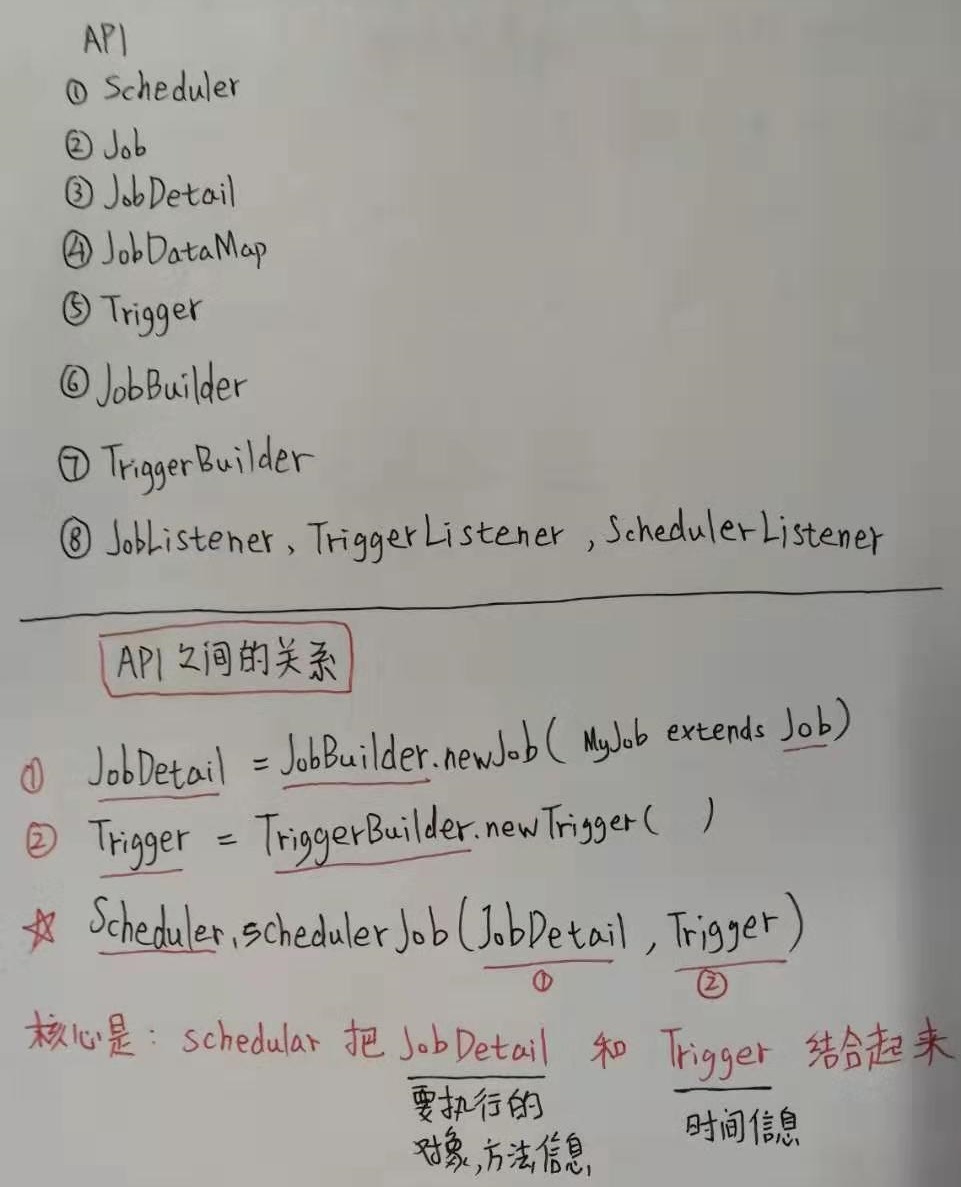 API
① Scheduler
② Job
③ JobDetail
④ JobDataMap
⑤ Trigger
⑥ JobBuilder
⑦ TriggerBuilder
⑧ JobListener、TriggerListener ,SchedulerListener
API 之间的关系
① JobDetail = JobBuilder.newJob( MyJob extends Job)
② Trigger = TriggerBuilder.newTrigger( )
☆ Scheduler.schedulerJob(JobDetail , Trigger)
① ②
核心是: schedular 把 JobDetail 和 Trigger 结合起来
要执行的 时间信息
对象,方法信息,